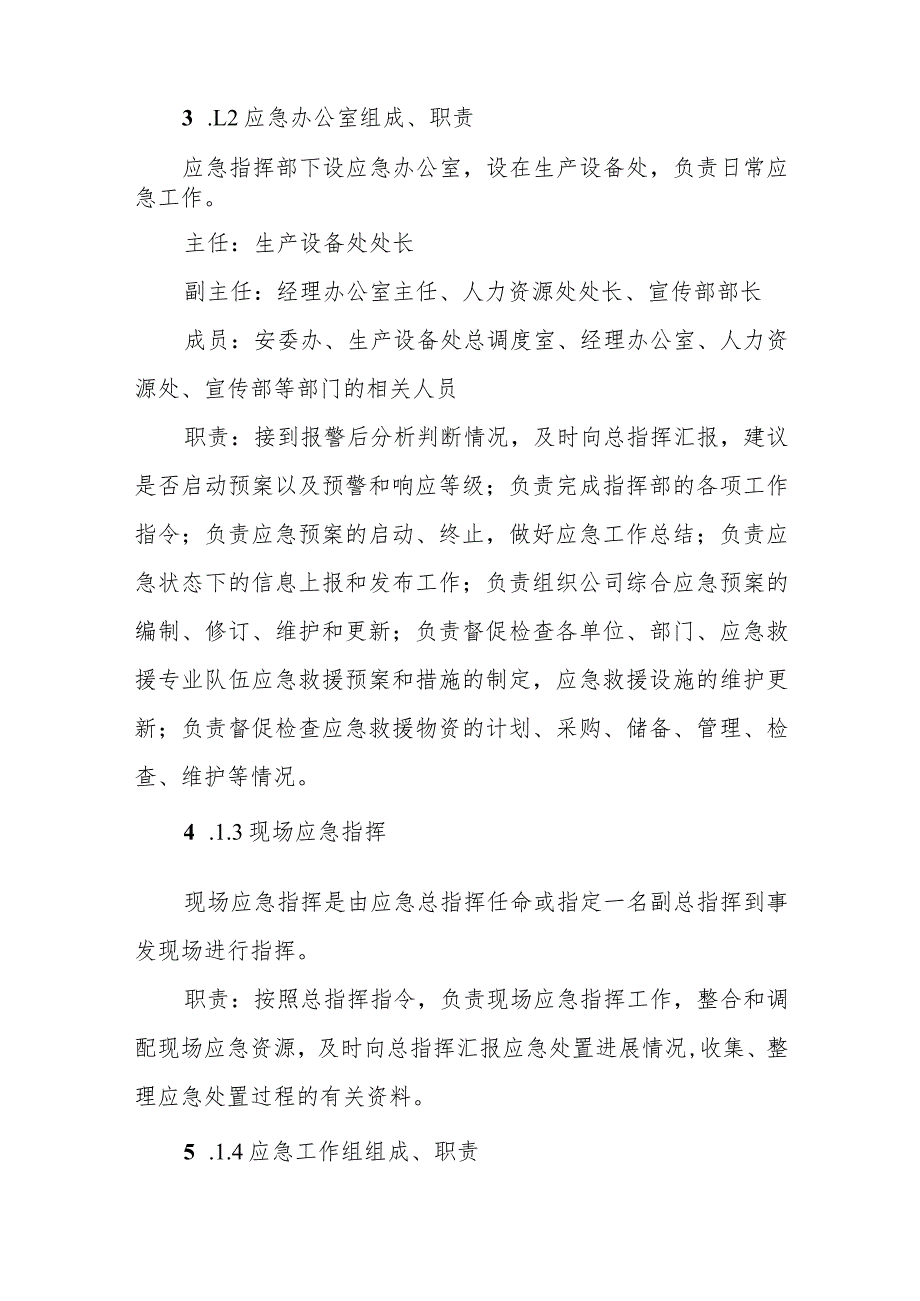 3 .L2应急办公室组成、职责
应急指挥部下设应急办公室，设在生产设备处，负责日常应
急工作。
主任：生产设备处处长
副主任：经理办公室主任、人力资源处处长、宣传部部长
成员：安委办、生产设备处总调度室、经理办公室、人力资
源处、宣传部等部门的相关人员
职责：接到报警后分析判断情况，及时向总指挥汇报，建议
是否启动预案以及预警和响应等级；负责完成指挥部的各项工作
指令；负责应急预案的启动、终止，做好应急工作总结；负责应
急状态下的信息上报和发布工作；负责组织公司综合应急预案的
编制、修订、维护和更新；负责督促检查各单位、部门、应急救
援专业队伍应急救援预案和措施的制定，应急救援设施的维护更
新；负责督促检查应急救援物资的计划、采购、储备、管理、检
查、维护等情况。
4 .1.3现场应急指挥
现场应急指挥是由应急总指挥任命或指定一名副总指挥到事
发现场进行指挥。
职责：按照总指挥指令，负责现场应急指挥工作，整合和调
配现场应急资源，及时向总指挥汇报应急处置进展情况,收集、整
理应急处置过程的有关资料。
5 .1.4应急工作组组成、职责